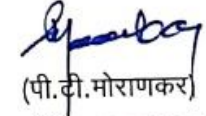 (पी.टी.मोराणकर)